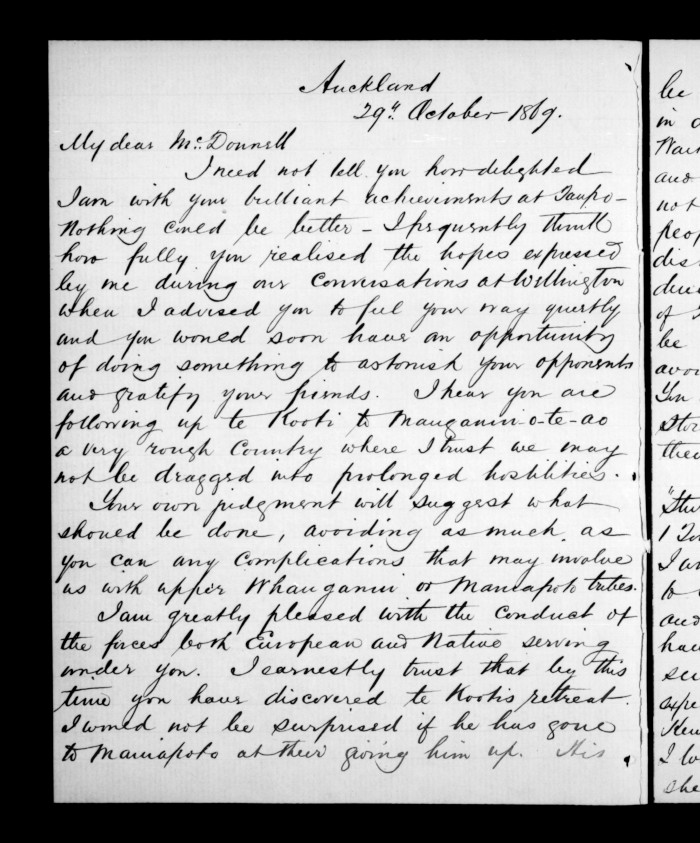 Auckland
29th October 1869.
My dear McDonnell
I need not tell you how delighted
I am with your brilliant achievements at Taupo -
Nothing could be better - I frequently think
how fully you realised the hopes expressed
by me during our conversations at Wellington
when I advised you to feel your way quietly
and you would soon have an opportunity
of doing something to astonish your opponents
and gratify your friends. I hear you are
following up te Kooti to Manganui-o-te-ao
a very rough Country where I trust we may
not be dragged into prolonged hostilities.
Your own judgment will suggest what
should be done, avoiding as much as
you can any complications that may involve
us with upper Whanganui or Maniapoto tribes.
I am greatly pleased with the conduct of
the forces both European and Native serving
under you. I earnestly trust that by this
time you have discovered te Kootis retreat.
I would not be surprised if he has gone
to Maniapoto at their giving him up. His
be
in
and
not
of
be
You
I
to
and
I
she